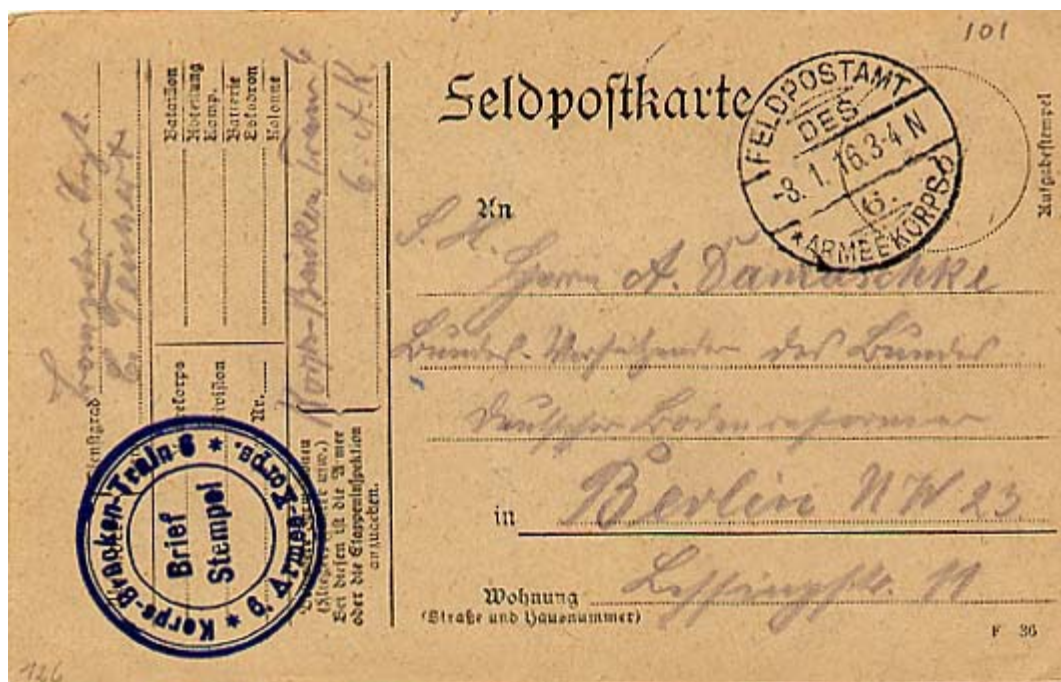 101
Feldpostkarte
FELDPOSTAMT
DES
-8. 1. 16. 3-4 N
6.
* ARMEEKORPS b
Aufgabestempel
An
S. H.
Herrn A. Damaschke
Bundes-Vorsitzender des Bundes
deutscher Bodenreformer
in Berlin NW 23
Wohnung Lessingstr. 11
(Straße und Hausnummer)
F 36
Dienstgrad
Bataillon
Abteilung
Komp.
Batterie
Eskadron
Kolonne
Korps-Brücken Train 6
6 A.K.
Nr.
Bei diesen ist die Armee
oder die Etappeninspektion
anzugeben.
* Korps-Brücken-Train 6 * 6. Armee-Korps.
Brief
Stempel
126